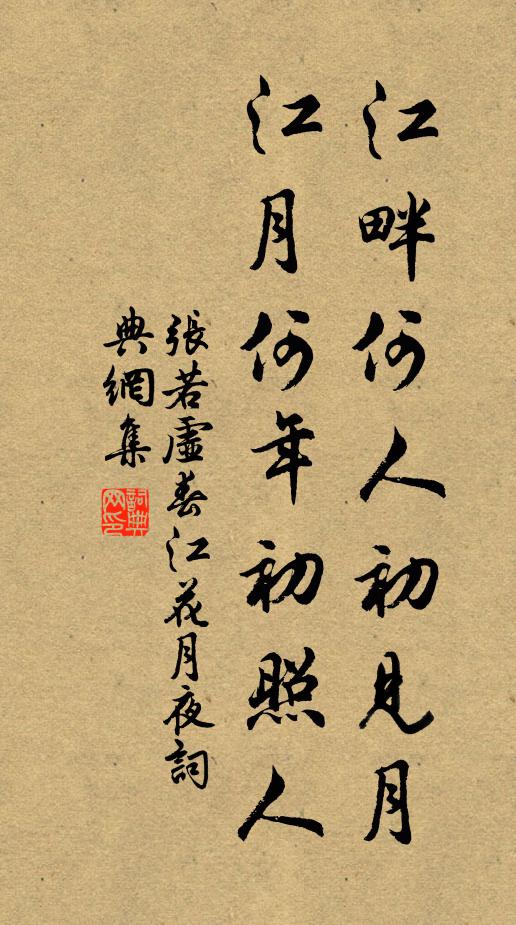 江畔何人初見月
江月何年初照人
張若虛春江花月夜詞
典網集
詞典網印